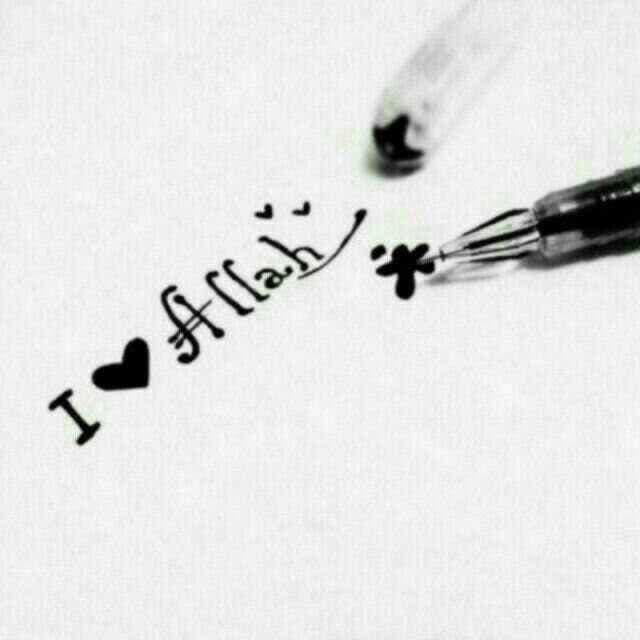 I ♥ Allah